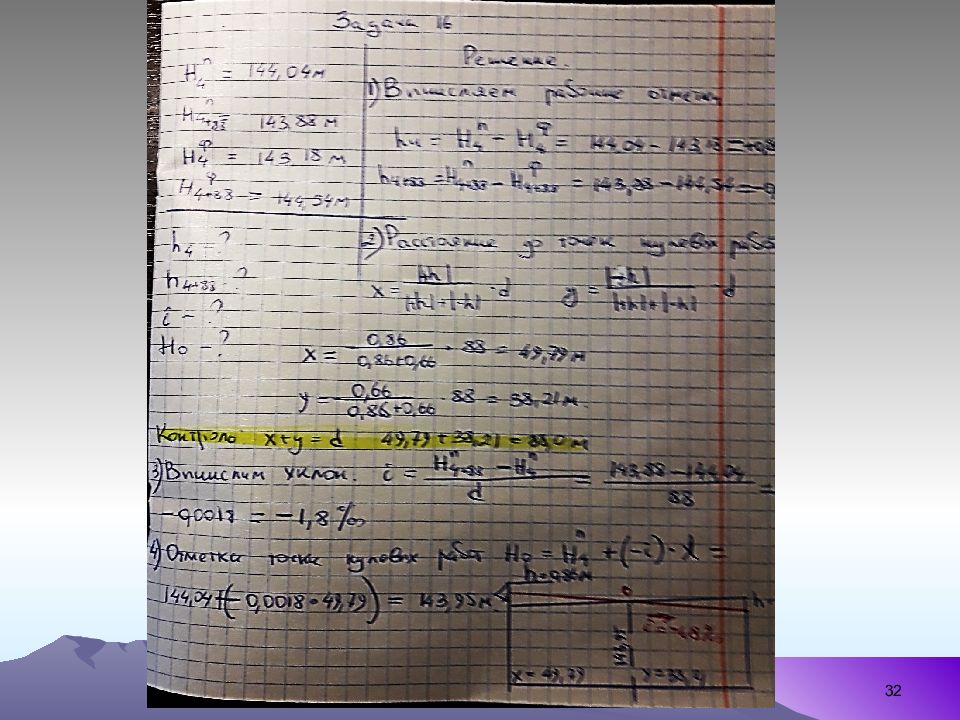 Задача 16
H₄ⁿ = 144,04м
H₄₊₈₈ⁿ = 143,88 м
H₄ᶲ = 143,18 м
H₄₊₈₈ᶲ = 144,54м
h₄ - ?
h₄₊₈₈ - ?
i - ?
H₀ - ?
Решение.
1) Вычисляем рабочие отметки
h₄ = H₄ⁿ - H₄ᶲ = 144,04 - 143,18 = +0,8
h₄₊₈₈ = H₄₊₈₈ⁿ - H₄₊₈₈ᶲ = 143,88 - 144,54 = -0
2) Расстояние до точек нулевых рабо
x = |+h| / (|+h| + |-h|) · d   y = |-h| / (|+h| + |-h|) · d
x = 0,86 / (0,86+0,66) · 88 = 49,79 м
y = 0,66 / (0,86+0,66) · 88 = 38,21 м.
Контроль x+y = d 49,79 + 38,21 = 88,0 м
3) Вычислим уклон. i = (H₄₊₈₈ⁿ - H₄ⁿ) / d = (143,88 - 144,04) / 88 =
-0,0018 = -1,8‰
4) Отметка точки нулевых работ H₀ = H₄ⁿ + (-i) · d =
144,04 + (-0,0018 · 49,79) = 143,95 м
h=0,86м
0
h-
i=-1,8‰
x = 49,79 y = 38,21
32